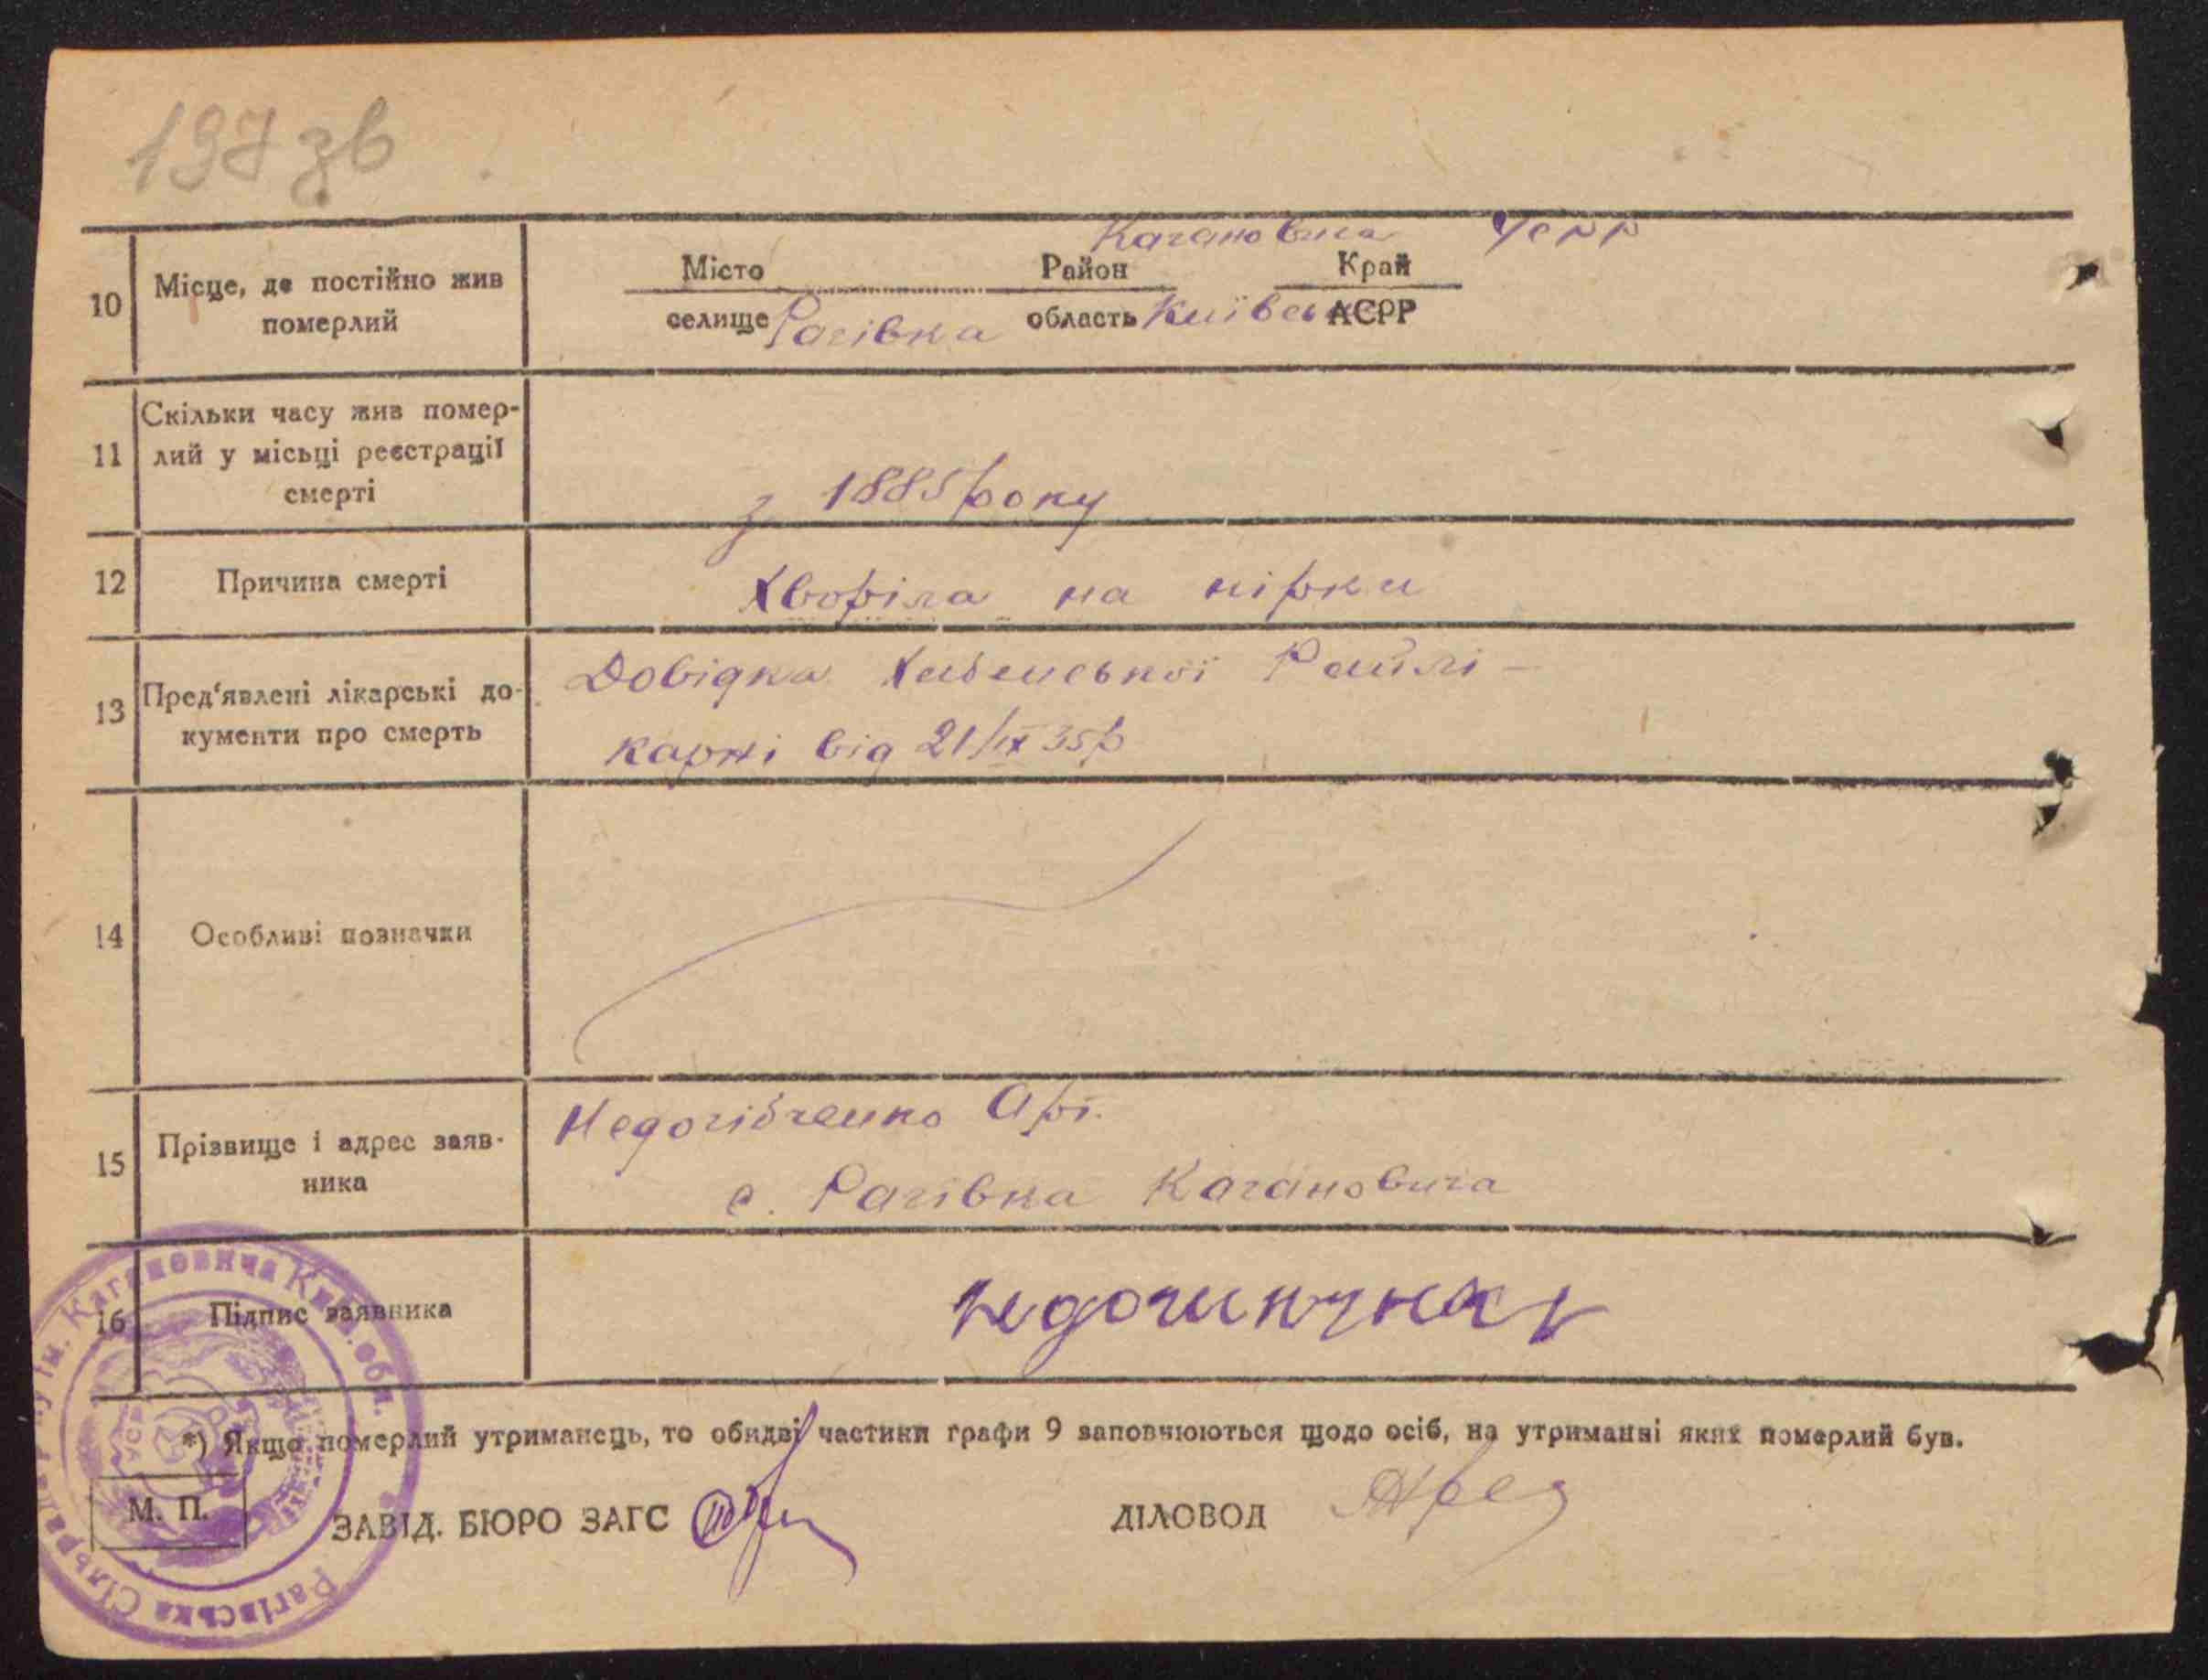 197 зв
Кагановича УСРР
10 Місце, де постійно жив померлий
Місто Район Край
селище Рагівка область Київська АСРР
11 Скільки часу жив помер-
лий у місьці реєстрації
смерті
з 1885 року
12 Причина смерті Хворіла на нірки
13 Пред'явлені лікарські до-
кументи про смерть
Довідка Хабенської Райлі-
карні від 21/IX 35р
14 Особливі позначки
15 Прізвище і адрес заяв-
ника
с. Рагівка Кагановича
16 Підпис заявника
*) Якщо померлий утриманець, то обидві частини графи 9 заповнюються щодо осіб, на утриманні яких померлий був.
М. П. ЗАВІД. БЮРО ЗАГС ДІЛОВОД
Рагівська Сільрада ім. Кагановича Київ. обл.